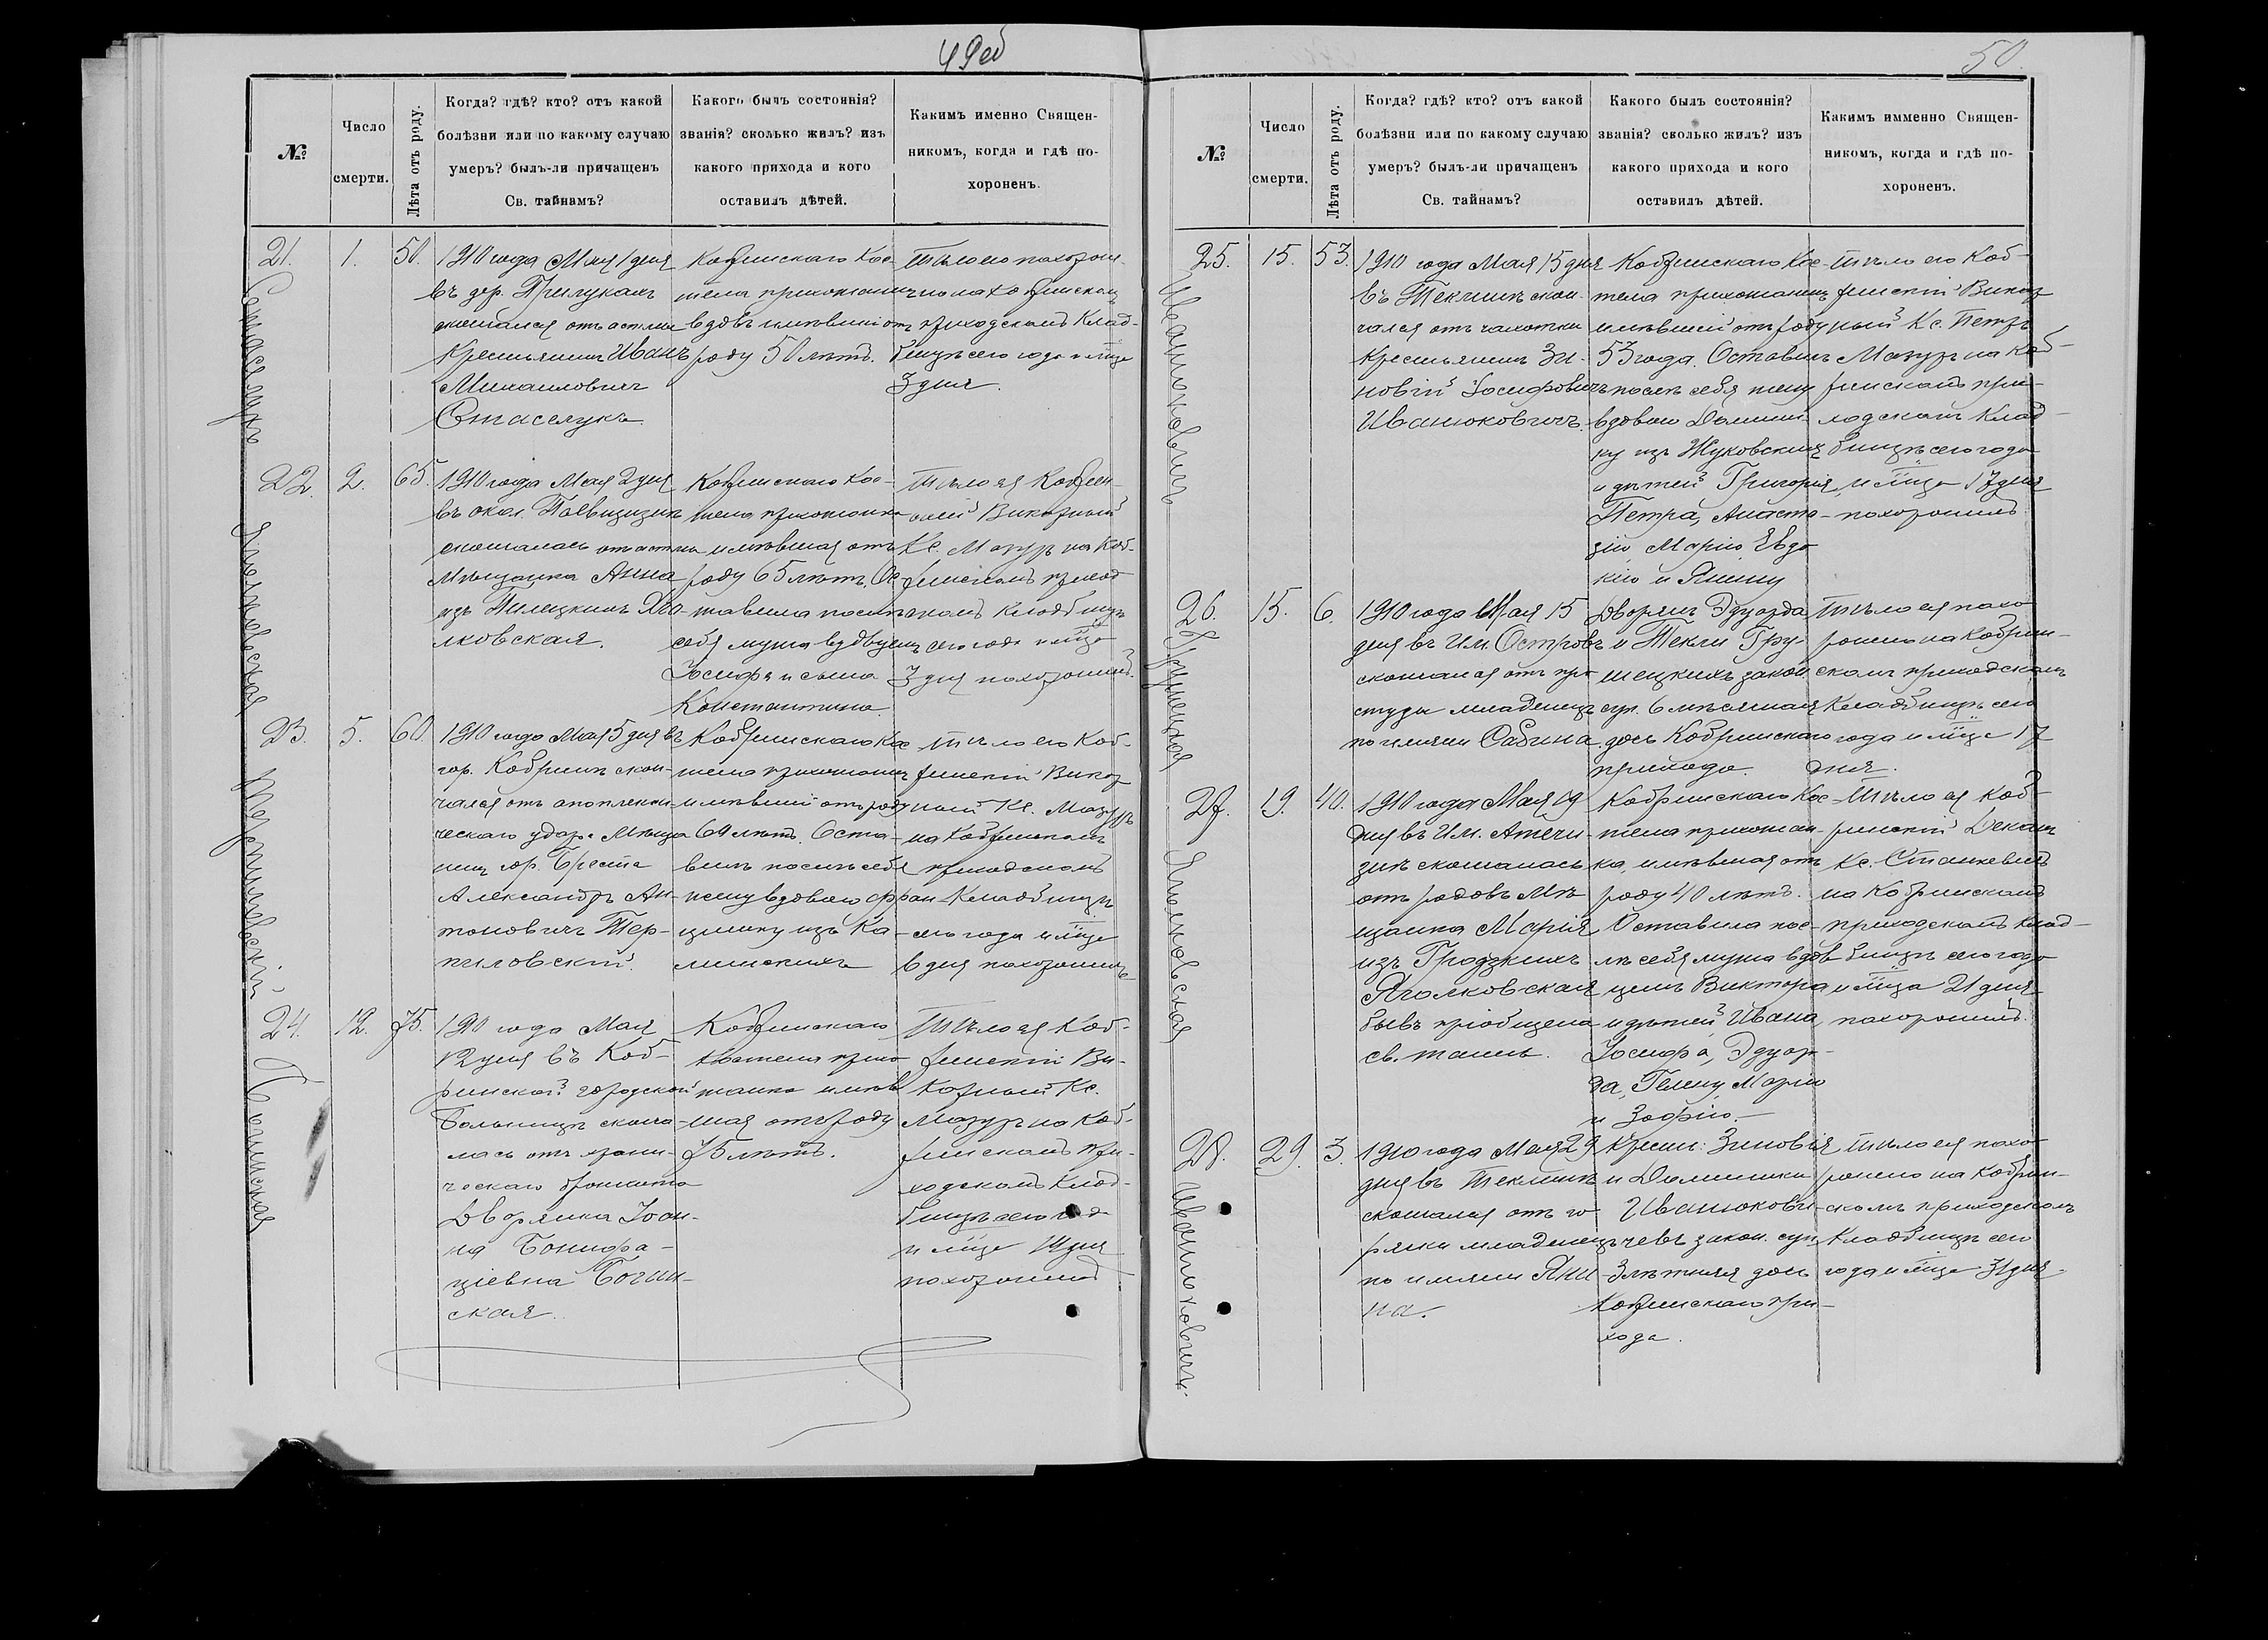 49об
№
Число
смерти.
Лѣта отъ роду.
Когда? гдѣ? кто? отъ какой
болѣзни или по какому случаю
умеръ? былъ-ли причащенъ
Св. тайнамъ?
Какого былъ состоянія?
званія? сколько жилъ? изъ
какого прихода и кого
оставилъ дѣтей.
Какимъ именно Священ-
никомъ, когда и гдѣ по-
хороненъ.
21.
Стаселукъ
1.
50.
1910 года Мая 1 дня
въ дер. Прилукахъ
скончался отъ астмы
Крестьянинъ Иванъ
Михаиловичъ
Стаселукъ
Кобринскаго Кос-
тела прихожанинъ
вдовъ имѣвшій отъ
роду 50 лѣтъ.
Тѣло его похорон
на Кобринскомъ
приходскомъ Клад-
бищѣ сего года и м̃ца
3 дня.
22.
Яголковская
2.
65.
1910 года Мая 2 дня
въ окол.
скончалась отъ астмы
Мѣщанка Анна
изъ Пилецкихъ Яго-
лковская.
Кобринскаго Кос-
тела прихожанка
имѣвшая отъ
роду 65 лѣтъ. Ос
тавила послѣ
себя мужа вдовцемъ
Іосифа и сына
Константина.
Тѣло ея Кобрин-
скій Викарный
Кс. Мазуръ на Коб-
ринскомъ приход
скомъ кладбищѣ
сего года и м̃ца
3 дня похоронилъ.
23.
Терпиловскій.
5.
60.
1910 года Мая 5 дня въ
гор. Кобринѣ скон-
чался отъ апоплекси-
ческаго удар. Мѣща
нинъ гор. Бреста
Александръ Ан-
тоновичъ Тер-
пиловскій.
Кобринскаго Кос
тела прихожанинъ
имѣвшій отъ роду
60 лѣтъ. Оста-
вилъ послѣ себя
жену вдовою Фран
цишку изъ Ка-
линскихъ
Тѣло его Коб-
ринскій Викар
ный Кс. Мазуръ
на Кобринскомъ
приходскомъ
Кладбищѣ
сего года и м̃ца
6 дня похоронилъ
24.
12.
75.
1910 года Мая
12 дня въ Коб-
ринской городской
Больницѣ сконча
лась отъ хрони-
ческаго бронхита
Дворянка Іоан-
на Бонифа-
ціевна Богин-
ская.
Кобринскаго
Костела прихо
жанка имѣв
шая отъ роду
75 лѣтъ.
Тѣло ея Коб-
ринскій Ви-
карный Кс.
Мазуръ на Коб-
ринскомъ при-
ходскомъ Клад-
бищѣ сего года
и м̃ца дня
похоронилъ
50.
№
Число
смерти.
Лѣта отъ роду.
Когда? гдѣ? кто? отъ какой
болѣзни или по какому случаю
умеръ? былъ-ли причащенъ
Св. тайнамъ?
Какого былъ состоянія?
званія? сколько жилъ? изъ
какого прихода и кого
оставилъ дѣтей.
Какимъ имменно Священ-
никомъ, когда и гдѣ по-
хороненъ.
25.
Иванюковичъ
15.
53.
1910 года Мая 15 дня
въ Теклинѣ скон-
чался отъ чахотки
Крестьянинъ Зи-
новій Іосифовичъ
Иванюковичъ.
Кобринскаго Кос-
тела прихожанинъ
имѣвшій отъ роду
53 года. Оставилъ
послѣ себя жену
вдовою Домини-
ку изъ Жуковскихъ
и дѣтей Григорія,
Петра, Анаста-
зію, Марію, Евдо
кію и Янину
Тѣло его Коб-
ринскій Викар
ный Кс. Петръ
Мазуръ на Коб-
ринскомъ при-
ходскомъ Клад-
бищѣ сего года
и м̃ца 17 дня
похоронилъ
26.
15.
6.
1910 года Мая 15
дня въ Им. Островѣ
скончался отъ про
студы младенецъ
по имени Сабина.
Дворянъ Эдуарда
и Текли Гру-
шецкихъ закон
суп. 6 мѣсячная
дочь Кобринскаго
прихода.
Тѣло ея похо
ронено на Кобрин-
скомъ приходскомъ
Кладбищѣ сего
года и м̃ца 17
дня.
27.
Яголковская
19.
40.
1910 года Мая 19
дня въ Им. Атечи-
знѣ скончалась
отъ родовъ Мѣ
щанка Марія
изъ Гродзкихъ
Яголковская
бывъ пріобщена
св. таинъ.
Кобринскаго Кос-
тела прихожан-
ка, имѣвшая отъ
роду 40 лѣтъ.
Оставила пос-
лѣ себя мужа вдов
цемъ Виктора
и дѣтей Ивана,
Іосифа, Эдуар-
да, Гелену, Марію
и Зофію.
Тѣло ея Коб-
ринскій Деканъ
Кс. Станкевичъ
на Кобринскомъ
приходскомъ Клад-
бищѣ сего года
и м̃ца 21 дня
похоронилъ.
28.
Иванюковичъ.
29.
3.
1910 года Мая 29
дня въ Теклинѣ
скончался отъ го
рячки младенецъ
по имени Яни
на.
Крестьян: Зиновія
и Доминики
Иванюкови-
чевъ закон. суп.
3 лѣтняя дочь
Кобринскаго при-
хода.
Тѣло ея похо-
ронено на Кобрин-
скомъ приходскомъ
Кладбищѣ сего
года и м̃ца 31 дня.